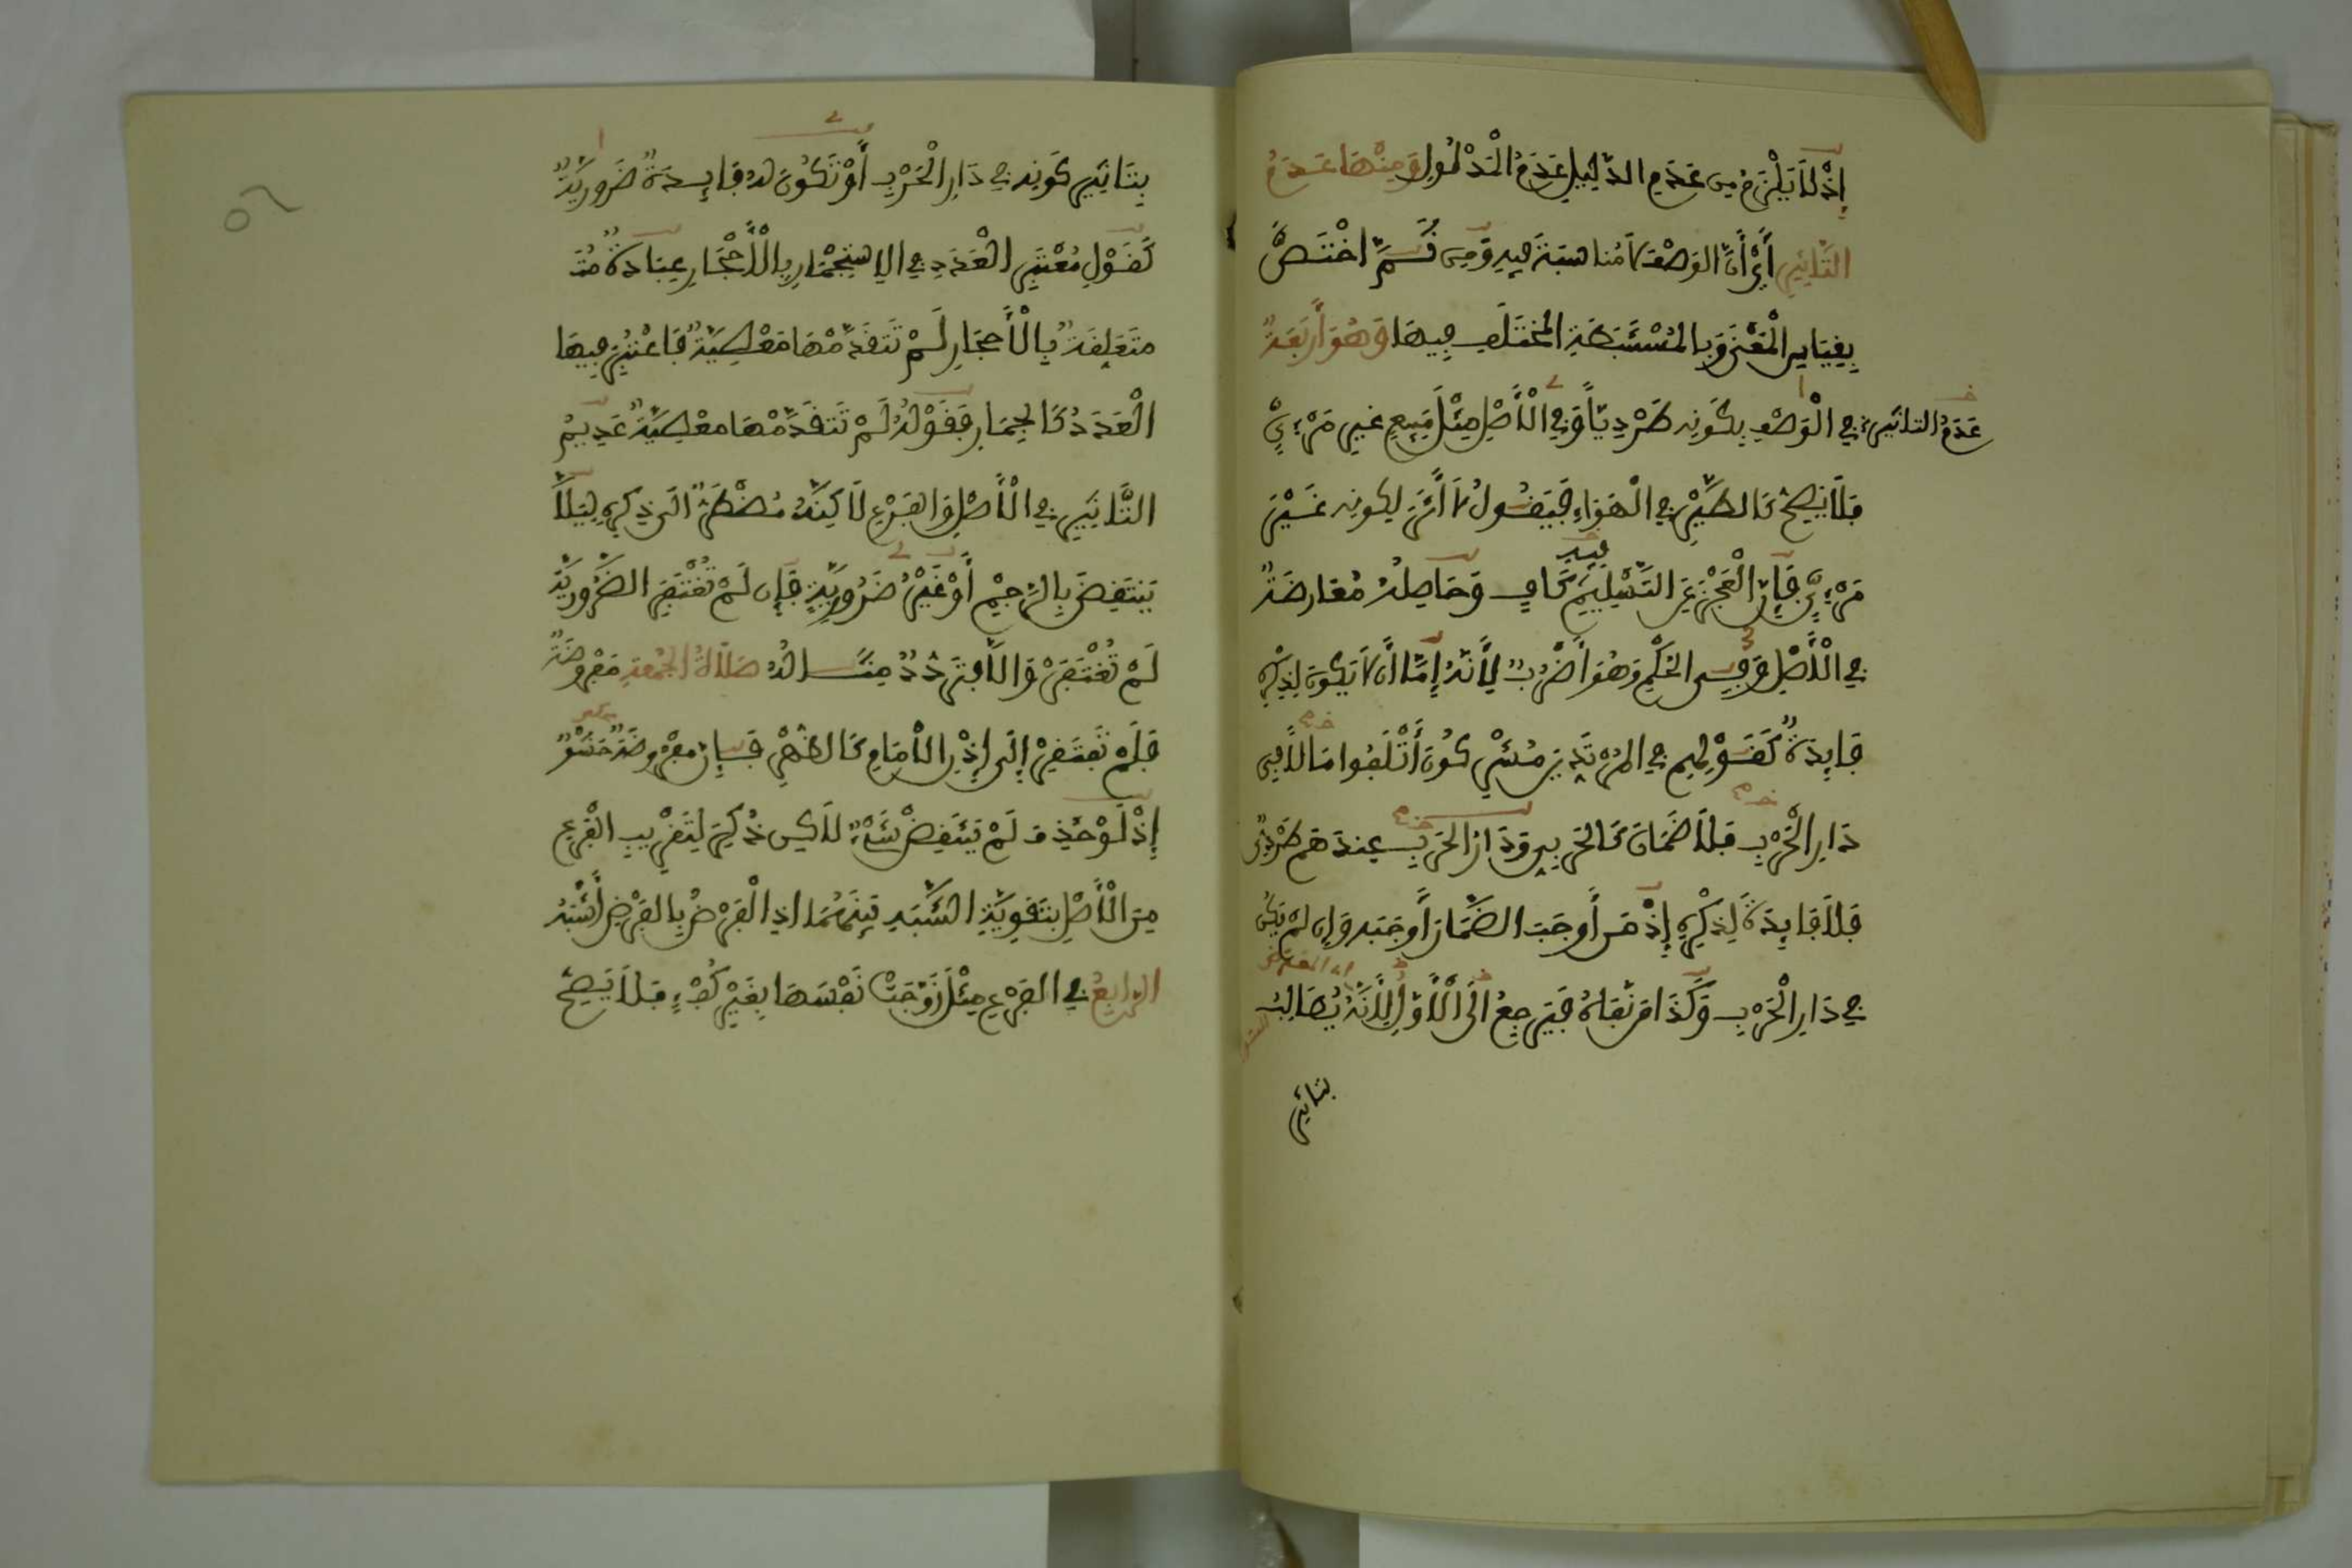 إِذْ لَا يَلْزَمُ مِن عَدَمِ الدَّلِيلِ عَدَمُ الْمَدْلُولِ وَمِنْهَا عَدَمُ
التَّاثِيرِ أَيْ أَنَّ الوَصْفَ لَا مُنَاسَبَةَ فِيهِ وَمِن ثَمَّ اخْتَصَّ
بِقِيَاسِ الْمَعْنَى وَبِالْمُسْتَنْبَطَةِ الْمُخْتَلَفِ فِيهَا وَهُوَ أَرْبَعَةٌ
عَدَمُ التاثير فِي الْوَصْفِ بِكَوْنِهِ طَرْدِيّاً وَفِي الْأَصْلِ مِثْلَ مَبِيعٍ غَيْرِ مَرْءِيٍّ
فَلَا يَصِحُّ كَالطَّيْرِ فِي الْهَوَاءِ فَيَقُولُ لَا أَثَرَ لِكَوْنِهِ غَيْرَ
مَرْءِيٍّ فَإِنَّ الْعَجْزَ عَنِ التَّسْلِيمِ فِيهِ كَافٍ وَحَاصِلُهُ مُعَارَضَةٌ
فِي الْأَصْلِ وَفِي الْحُكْمِ وَهُوَ أَضْرُبٌ لِأَنَّهُ إِمَّا أَن لَّا يَكُونَ لِذِكْرِهِ
فَايِدَةٌ كَقَوْلِهِم فِي الْمُرْتَدِّينَ مُشْرِكُونَ أَتْلَفُوا مَالًا فِي
دَارِ الْحَرْبِ فَلَا ضَمَانَ كَالْحَرْبِيِّ وَدَارُ الْحَرْبِ عِندَهُم طَرْدِيٌّ
فَلَا فَايِدَةَ لِذِكْرِهِ إِذْ مَن أَوجَبَ الضَّمَانَ أَوجَبَهُ وَإِن لَمْ يَكُن
فِي دَارِ الْحَرْبِ وَكَذَا مَن نَفَاهُ فَيَرجِعُ الَى الْأَوَّلِ لِأَنَّهُ يُطَالِبُ
بتاثير
بِتَاثِيرِ كَونِهِ فِي دَارِ الْحَرْبِ أَوْ تَكُونَ لَهُ فَايِدَةٌ ضَرُورِيَّةٌ
كَقَوْلِ مُعْتَبِرِ الْعَدَدِ فِي الِاسْتِجْمَارِ بِالْأَحْجَارِ عِبَادَةٌ مُتَـ
مُتَعَلِّقَةٌ بِالْأَحجَارِ لَمْ تَتَقَدَّمْهَا مَعْصِيَةٌ فَاعْتُبِرَ فِيهَا
الْعَدَدُ كَالجِمَارِ فَقَوْلُهُ لَمْ تَتَقَدَّمْهَا معْصِيَةٌ عَدِيمُ
التَّاثِيرِ فِي الْأَصْلِ وَالفَرْعِ لَاكِنَّهُ مُضْطَرٌّ الَى ذِكْرِهِ لِيَلَّا
يَنتَقِضَ بِالرَّجْمِ أَوْ غَيْرُ ضَرُورِيَّةٍ فَإِن لَمْ تُغْتَفَرِ الضَّرُورِيَّة
لَمْ تُغْتَفَرْ وَإِلَّا فَتَرَدُّدٌ مِثَالُهُ صَلَاةُ الْجُمُعَةِ مَفْرُوضَةٌ
فَلَمْ تَفْتَقِرْ إِلَى إِذْنِ الْإِمَامِ كَالظُّهْرِ فَإِنَّ مَفْرُوضَةٌ حَشْوٌ
إِذْ لَوْ حُذِفَ لَمْ يَنتَقِضْ شَيْءٌ لَاكِن ذُكِرَ لِتَقْرِيبِ الْفَرْعِ
مِنَ الْأَصْلِ بِتَقْوِيَةِ الشَّبَهِ بَيْنَهُمَا إِذِ الْفَرْضُ بِالْفَرْضِ أَشْبَهُ
الرَّابِعُ فِي الفَرْعِ مِثْلَ زَوَّجَتْ نَفْسَهَا بِغَيْرِ كُفْءٍ فَلَا يَصِحُّ